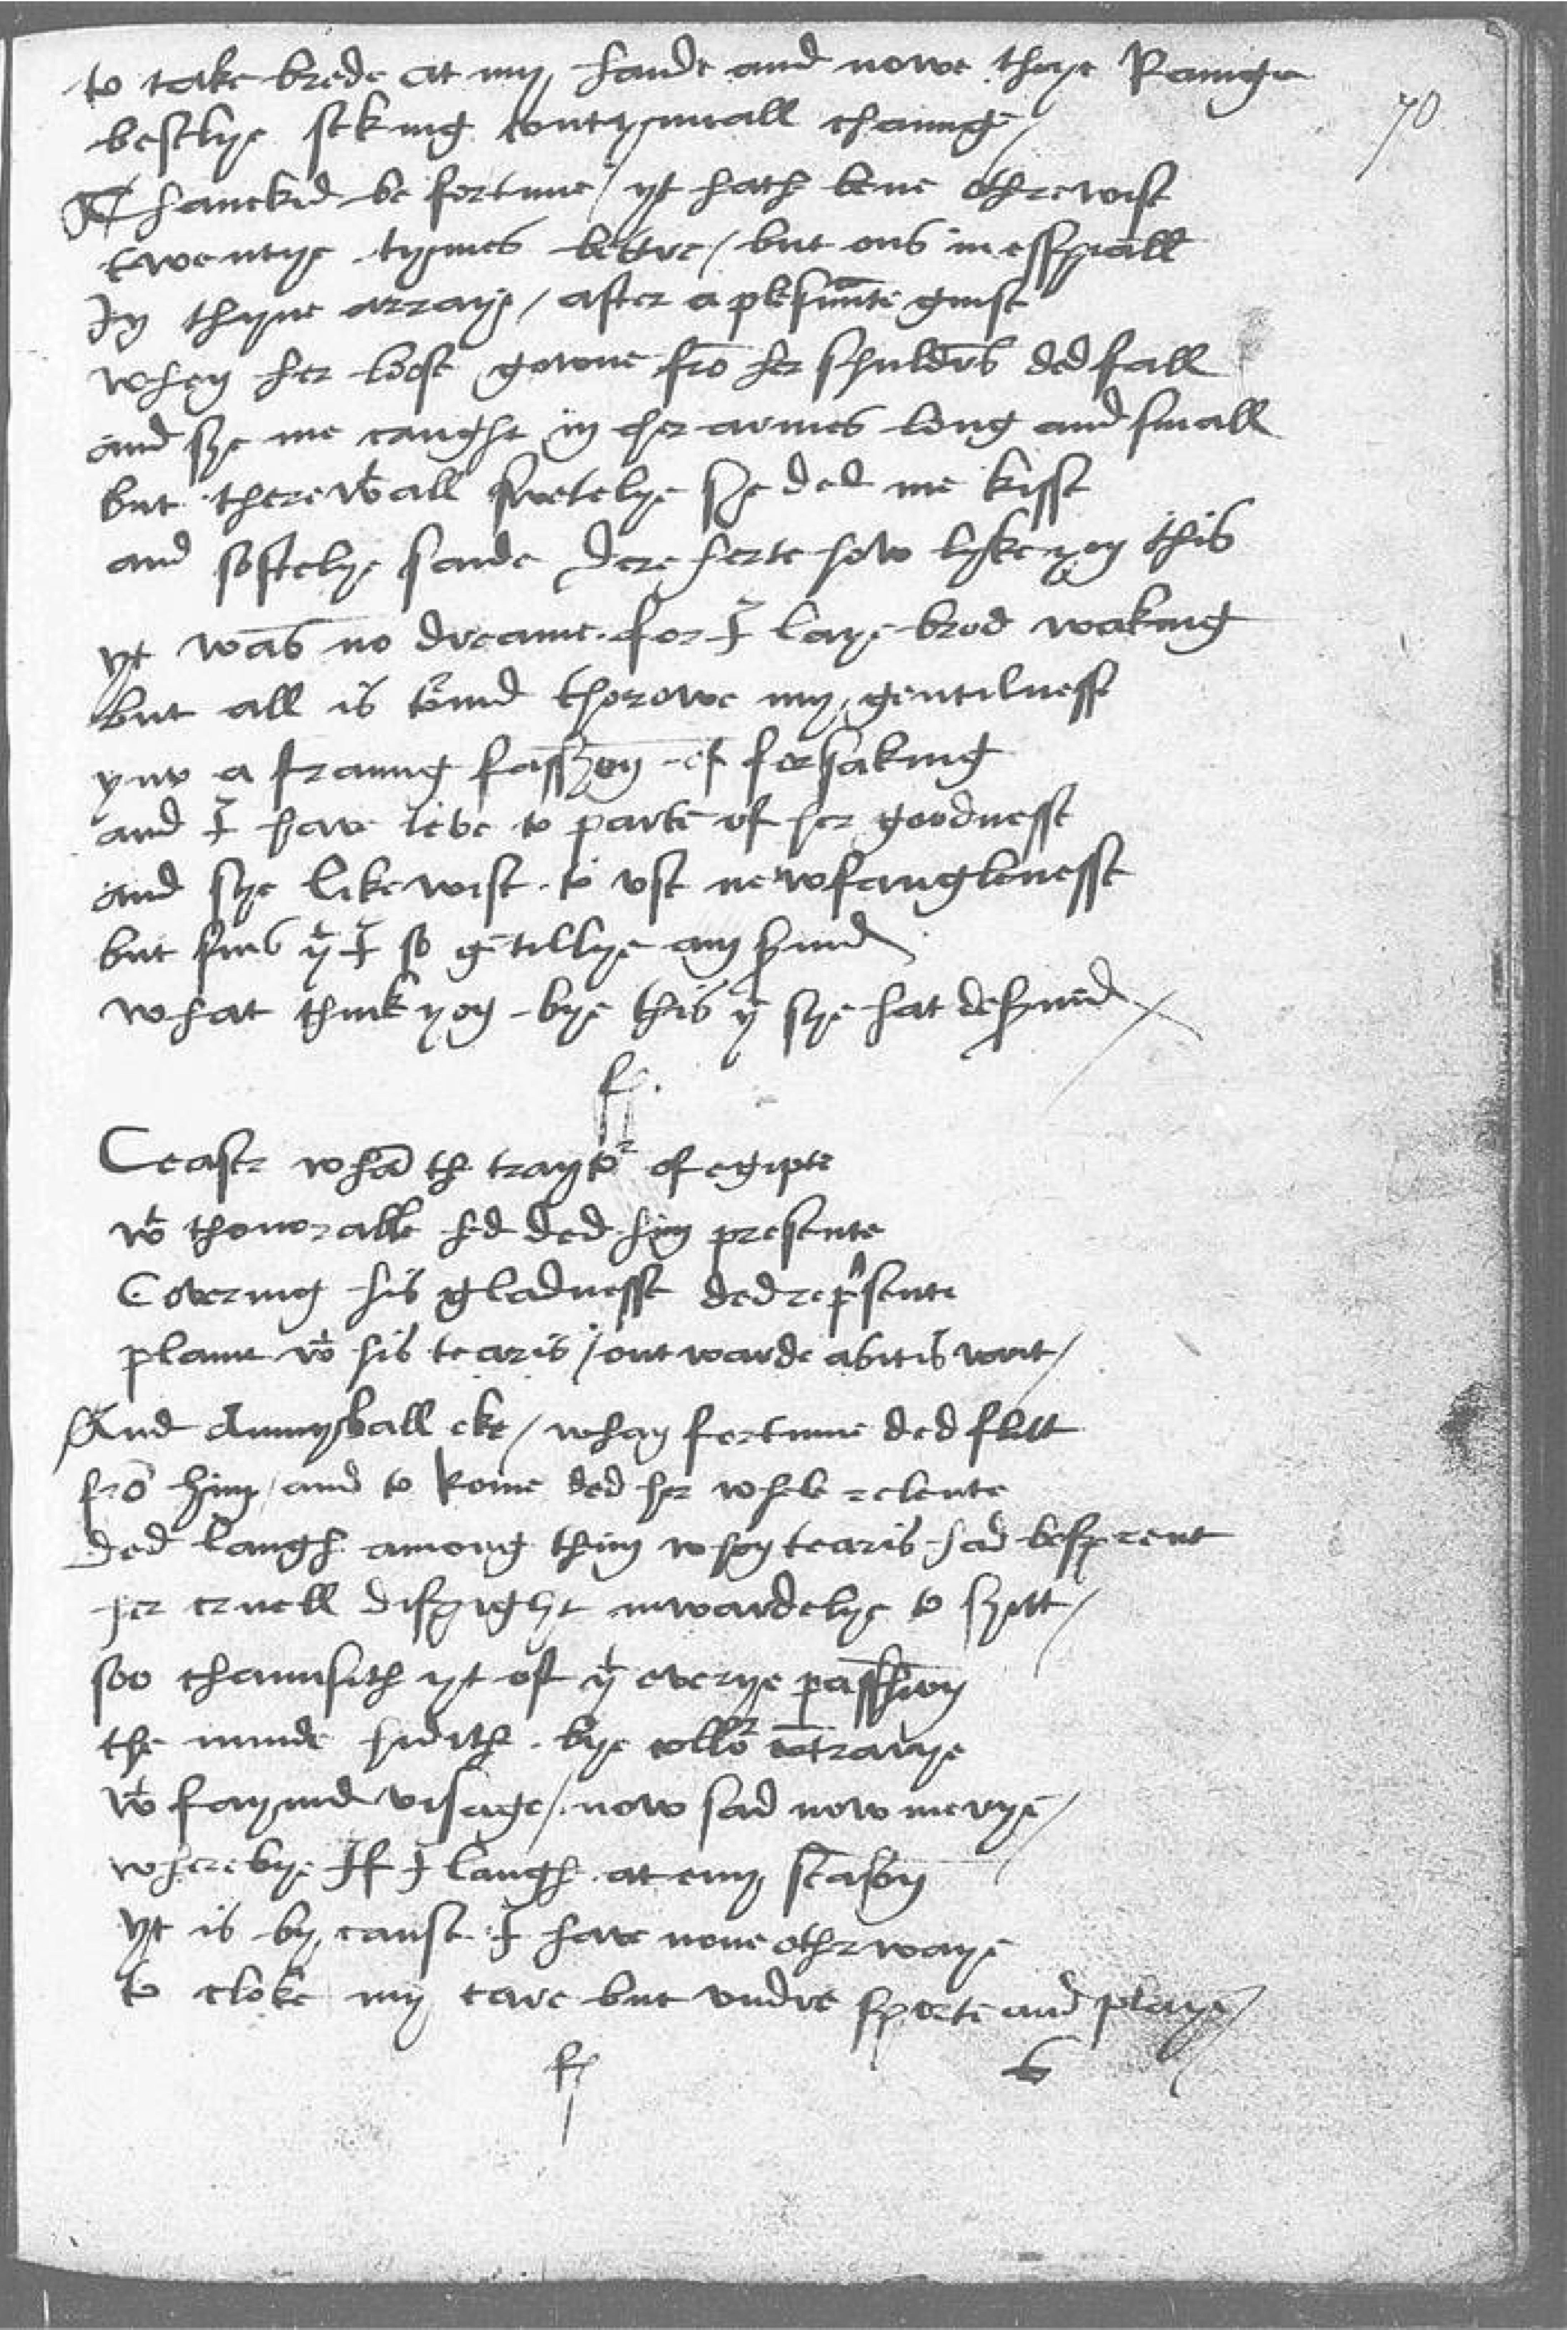 to take brede at my hande and nowe theye Raunge
70
beselye seking contynuall chaung /
Thanckid be fortune / yt hath bene othrewise
twentye tymes bettre / but ons in esspiall
In thynne arraye / after a plesaunte guise
when her loose gowne fro her shuldrs ded fall
and she me caught in her armes long and small
but therewtall swetelye she ded me kisse
and softelye saide dere herte how lyke you this
yt was no dreame for I laye brod waking
but all is tornid thorowe my gentilnesse
ynto a straung fasshon of forsaking
and I have leve to parte of her goodnesse
and she likewise to use newfanglenesse
but sins yt I so gentillye am servid
what think you bye this yt she hat deservid
fs.
Ceaser whan the traytor of egipte
wt thonorable hed ded him presente
Covering his gladnesse ded represente
plaint wt his tearis / outwarde as it is writ /
And Annyball eke / whan fortune ded flitt
fro him / and to Rome ded her whele relente
ded laugh among them whom tearis had besprent
her cruell dispight inwardelye to shitt /
soo chaunsith yt oft yt everye passhion
the minde hidith bye collor contrarye
wt faynid visage / now sad now merye /
wherebye If I laugh at eny season
yt is by cause I have none othr waye
to cloke my care but undre sporte and playe /
fs